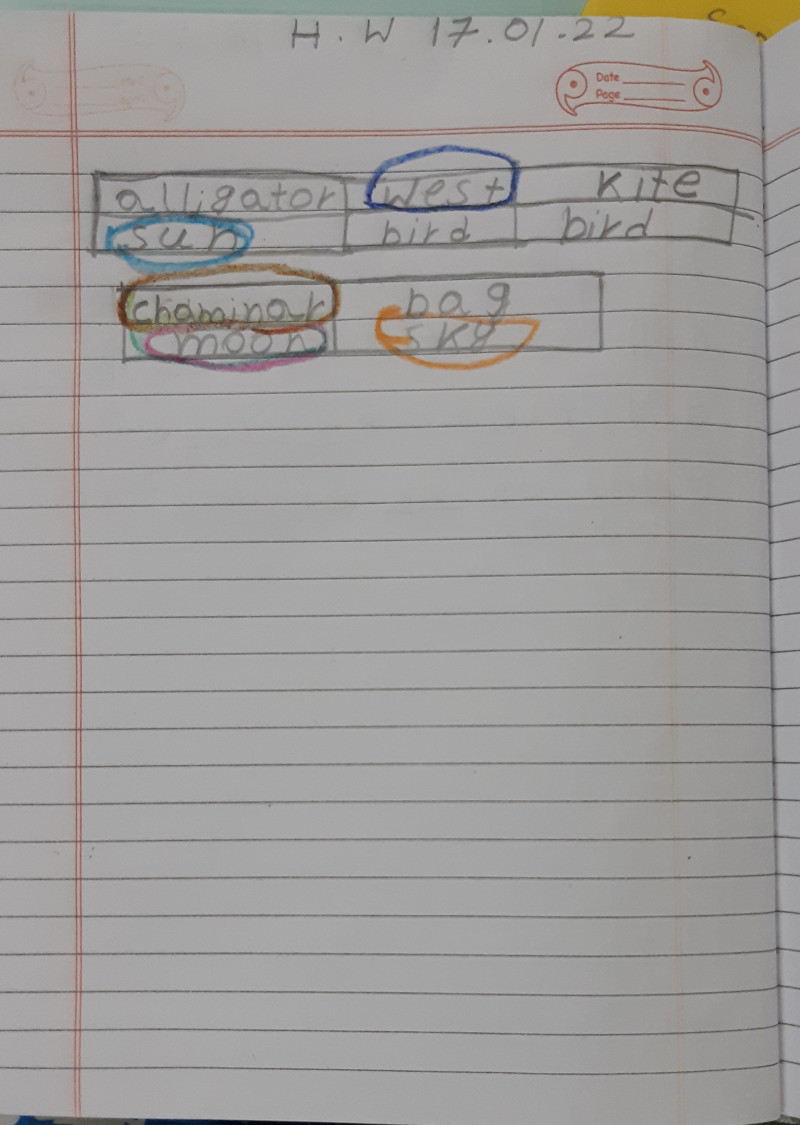 H.W 17.01.22
Date
Page
alligator west kite
sun bird bird
chaminar bag
moon sky